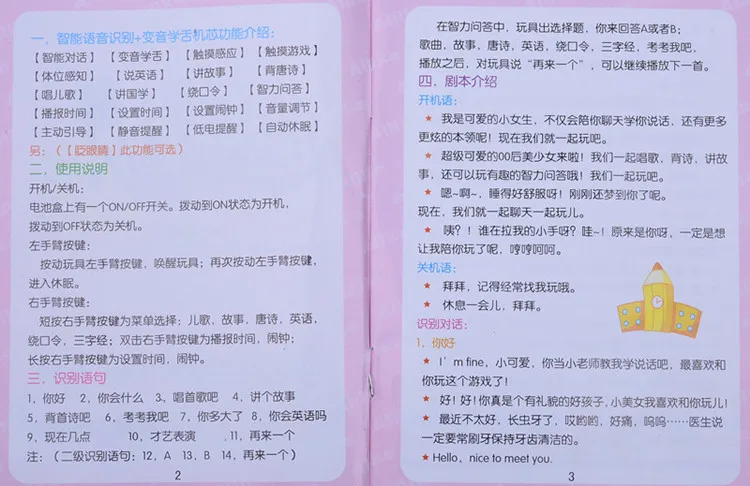 一、智能语音识别+变音学舌机芯功能介绍:
【智能对话】【变音学舌】【触摸感应】【触摸游戏】
【体位感知】【说英语】【讲故事】【背唐诗】
【唱儿歌】【讲国学】【绕口令】【智力问答】
【播报时间】【设置时间】【设置闹钟】【音量调节】
【主动引导】【静音提醒】【低电提醒】【自动休眠】
另:(【眨眼睛】此功能可选)
二、使用说明
开机/关机:
电池盒上有一个ON/OFF开关。拨动到ON状态为开机,
拨动到OFF状态为关机。
左手臂按键:
按动玩具左手臂按键,唤醒玩具;再次按动左手臂按键,
进入休眠。
右手臂按键:
短按右手臂按键为菜单选择:儿歌,故事,唐诗,英语,
绕口令,三字经;双击右手臂按键为播报时间,闹钟;
长按右手臂按键为设置时间,闹钟。
三、识别语句
1,你好 2,你会什么 3、唱首歌吧 4,讲个故事
5,背首诗吧 6、考考我吧 7,你多大了 8,你会英语吗
9、现在几点 10、才艺表演 11、再来一个
注:(二级识别语句:12,A 13、B 14,再来一个)
2
在智力问答中,玩具出选择题,你来回答A或者B;
歌曲,故事,唐诗,英语,绕口令,三字经,考考我吧,
播放之后,对玩具说“再来一个”,可以继续播放下一首。
四、剧本介绍
开机语:
★ 我是可爱的小女生,不仅会陪你聊天学你说话,还有更多
更炫的本领呢!现在我们就一起玩吧。
★ 超级可爱的00后美少女来啦!我们一起唱歌,背诗,讲故
事,还可以玩有趣的智力问答哦!我们一起玩吧。
★ 嗯~啊~,睡得好舒服呀!刚刚还梦到你了呢。
现在,我们就一起聊天一起玩儿。
★ 咦?!谁在拉我的小手呀?哇~!原来是你呀,一定是想
让我陪你玩了呢,哼哼呵呵。
关机语:
★ 拜拜,记得经常找我玩哦。
★ 休息一会儿,拜拜。
识别对话:
1,你好
★ I'm fine,小可爱,你当小老师教我学说话吧,最喜欢和
你玩这个游戏了!
★ 好!好!你真是个有礼貌的好孩子,小美女我喜欢和你玩儿!
★ 最近不太好,长虫牙了,哎哟哟,好痛,呜呜……医生说
一定要常刷牙保持牙齿清洁的。
★Hello,nice to meet you.
3